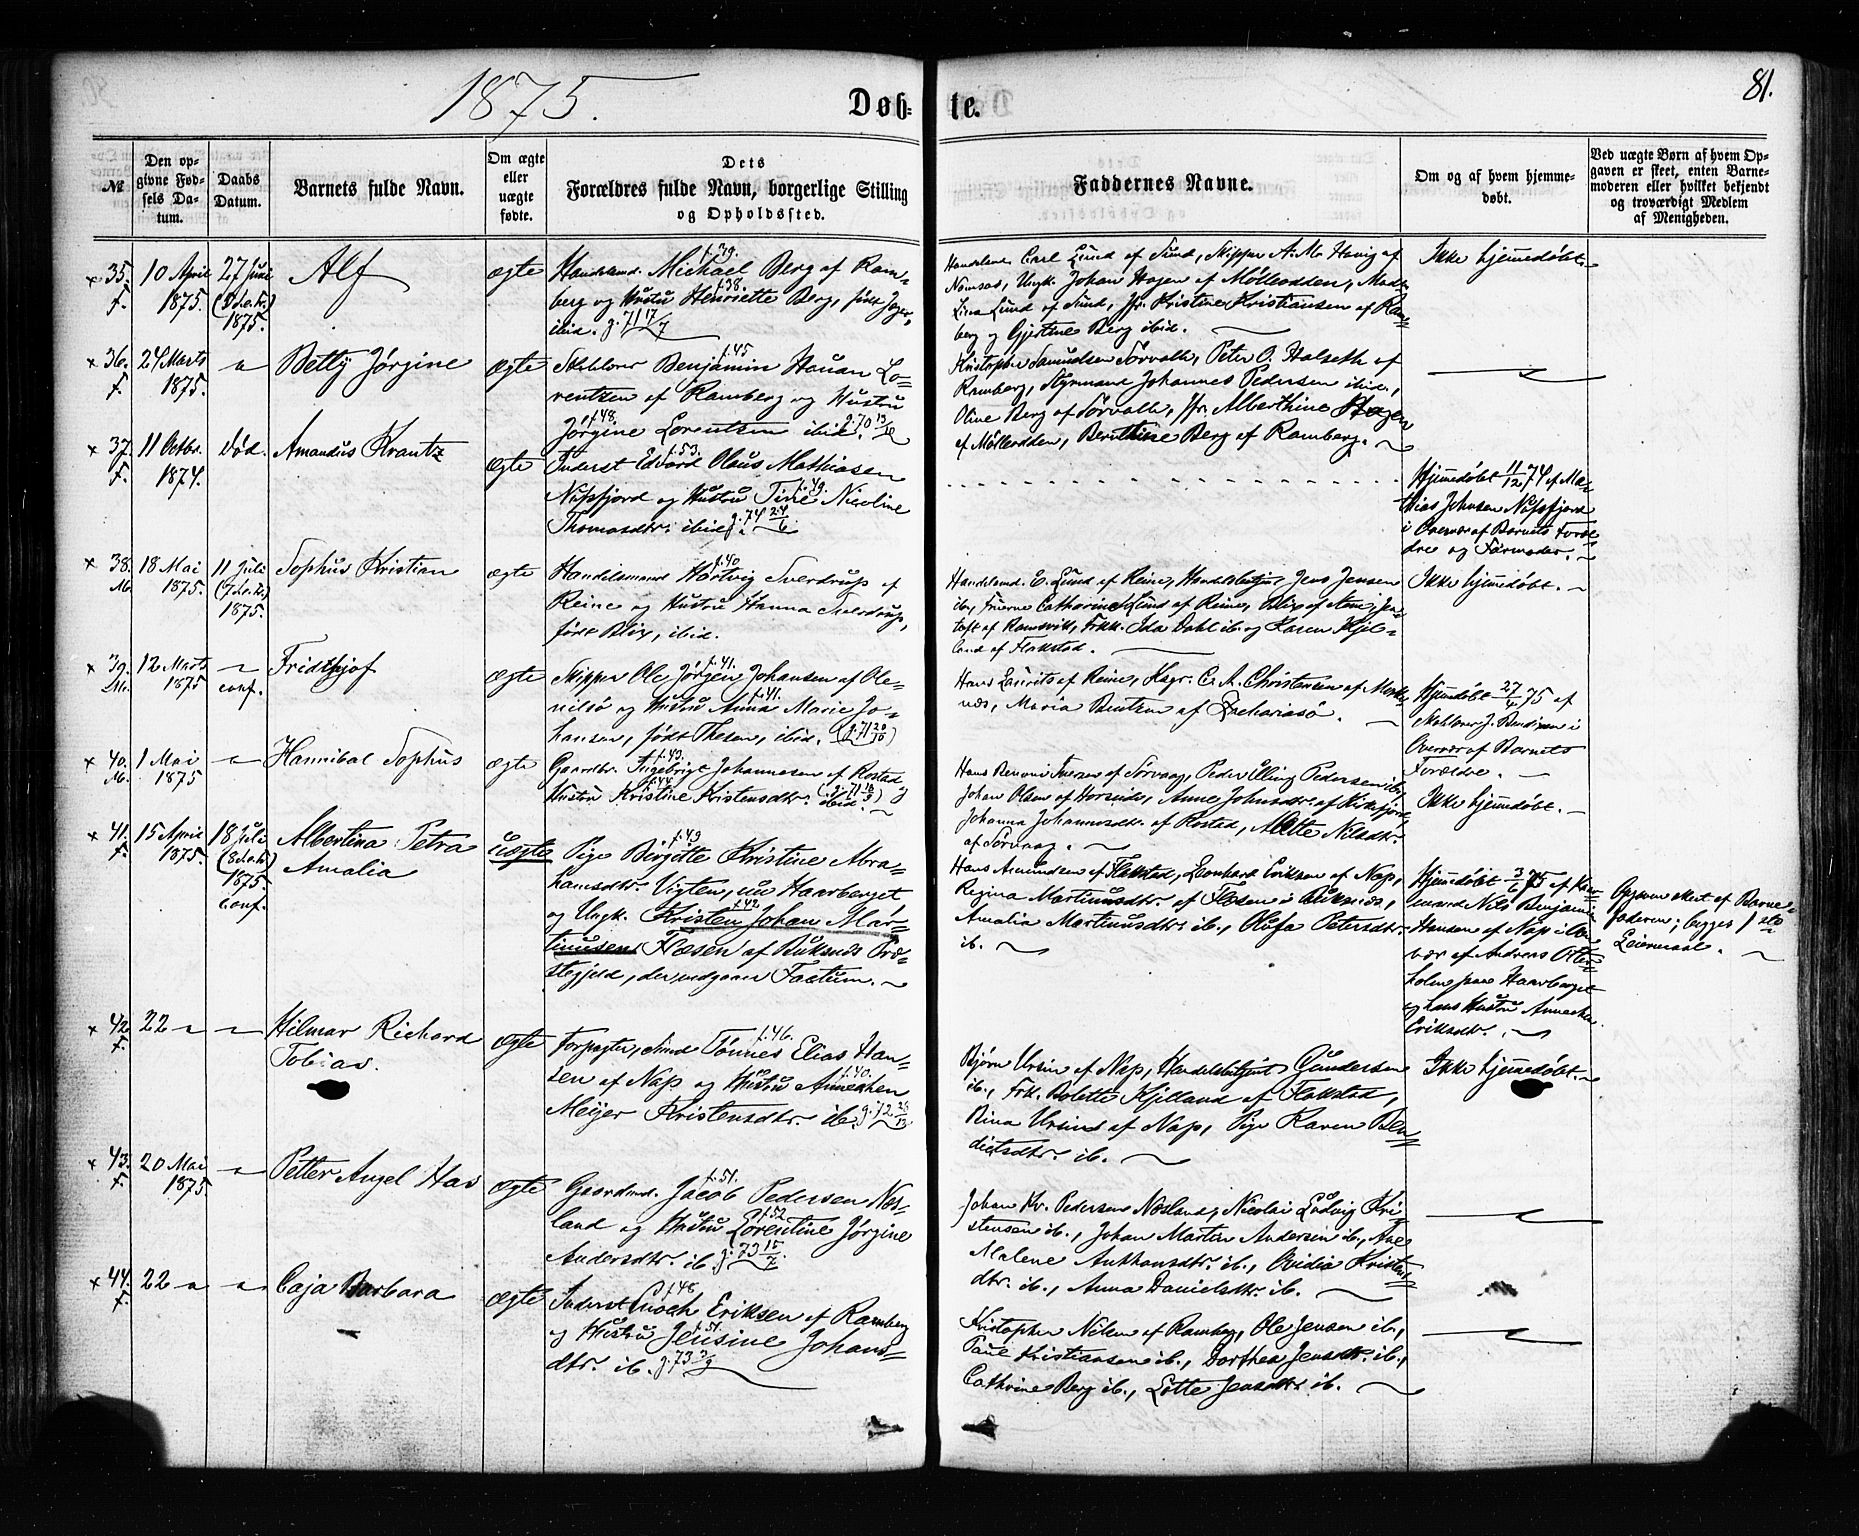 1875.
Døb-
te.
81.
№
Den op-
givne Fød-
sels Da-
tum.
Daabs
Datum.
Barnets fulde Navn.
Om ægte
eller
uægte
fødte.
Dets
Forældres fulde Navn, borgerlige Stilling
og Opholdssted.
Faddernes Navne.
Om og af hvem hjemme-
døbt.
Ved uægte Børn af hvem Op-
gaven er skeet, enten Barne-
moderen eller hvilket bekjendt
og troværdigt Medlem
af Menigheden.
× 35.
F.
10 April
1875.
27 Juni
1875.
Alf
ægte
f. 39.
Handelsmd. Michael Berg af Ram-
f. 38.
berg og Hustru Henriette Berg, født Jæger,
ibid. g. 71 17/7
Handelsmd. Carl Lund af Sund, Skipper A. M.
Johan Hagen af Mølleodden, Mad.
Lina Lund af Sund, Jfr. Kristine Kristiansen af Ram-
berg og Gjertine Berg ibid.
Ikke hjemmedøbt.
× 36.
F.
24 Marts
1875.
Betty Jørgine
ægte
f. 45
Benjamin Hauan Lo-
rentzen af Ramberg og Hustru
f. 48.
Jørgine Lorentzen ibid. g. 70
Kristopher Samuelsen Sørvalh, Peter O. Halseth af
Ramberg, Styrmand Johannes Pedersen ibid.,
Oline Berg af Sørvalh, Jfr. Alberthine Hagen
af Mølleodden, Bernthine Berg af Ramberg.
× 37.
F.
11 Octbr.
1874.
Død.
Amandus Krantz
ægte
f. 53.
Inderst Edvard Olaus Mathiasen
f. 49.
Nusfjord og Hustru Tine Nicoline
Thomasdtr. ibid. g. 74 24/6
Hjemmedøbt 11/12 74 af Ma-
thias Johnsen Nusfjord
i Overvær af Barnets Foræl-
dre og Farmoder.
× 38.
M.
18 Mai
1875.
11 Juli
1875.
Sophus Kristian
ægte
f. 40
Handelsmand Hartvig Sverdrup af
Reine og Hustru Hanna Sverdrup,
født Blix, ibid.
Handelsmd. E. Lund af Reine, Handelsbetjent Jens Jensen
ib., Fruerne Catharine Lund af Reine, Blix af
af Ramsvik, Frkk. Ida Dahl ib. og Karen Kjel-
land af Flakstad.
Ikke hjemmedøbt.
× 39.
M.
12 Marts
1875
conf.
Fridthjof
ægte
f. 41.
Skipper Ole Jørgen Johansen af Ole-
f. 41.
nilsø og Hustru Anna Marie Jo-
hansen, født Thesen, ibid. (g. 71 20/10)
Hans Lauritz af Reine, C. A. Christensen af
Maria Bentzen af Zachariasø.
Hjemmedøbt 27/4 75 af
i
Overvær af Barnets
Forældre.
× 40.
M.
1 Mai
1875
Hannibal Sophus
ægte
f. 43.
Gaardbr. Ingebrigt Johannesen af Rostad
f. 44
Hustru Kristine Kristensdtr. ibid.
af Sørvaag, Peder Elling Pedersen ib.,
Johan Olsen af Horseid, Anne Johnsdtr. af Kirkefjord,
Johanna Johannesdtr. af Rostad, Mette Nilsdtr.
af Sørvaag.
Ikke hjemmedøbt.
× 41.
F.
15 April
1875.
18 Juli
1875.
conf.
Albertina Petra
Amalia
uægte
f. 49
Pige Birgitte Kristine Abra-
hamsdtr. Vigten, nu Haarberget
f. 42.
og Ungk. Kristen Johan Mar-
tinusen Fl&aelig;sen af Buksnes Præ-
stegjeld, der vedgaar Factum.
Hans Amundsen af Flakstad, Leonhard Eriksen af Nap,
Regina Martinusdtr. af Flæsen i Buksnes,
Amalia Martinusdtr. ib., Olufa Petersdtr.
ib.
Hjemmedøbt 3/6 75 af
Nils Benjamin
Hansen af Nap i Over-
vær af Andreas
holm paa Haarberget
og hans Hustru Annecken
Eriksdtr.
Opgaven skeet af Barne-
faderen; begges 1ste
Leiermaal.
× 42.
F.
22
Hilmar Richard
Tobias.
ægte
f. 46.
Tønnes Elias Han-
f. 40.
sen af Nap og Hustru Annecken
Meijer Kristensdtr. ib. g. 72
Bjørn Ursin af Nap, Handelsbetjent Gundersen
ib., Frk. Bolette Kjelland af Flakstad,
Rina Ursin af Nap, Pige Karen Ben-
dictsdtr. ib.
Ikke hjemmedøbt.
× 43.
F.
20 Mai
1875
Petter Angel Has
ægte
f. 51.
Gaardmd. Jacob Pedersen Næs-
f. 52
land og Hustru Lorentine Jørgine
Andersdtr. ib. g. 73 15/7.
Johan Kr. Pedersen Næsland, Nicolai Ludvig Kri-
stensen ib., Johan Martin Andersen ib.,
Malene Anthonsdtr. ib., Ovidia Kristens-
dtr. ib., Anna Danielsdtr. ib.
× 44.
F.
22
Caja Barbara
ægte
f. 48
Inderst Enoch Eriksen af Ramberg
f. 51.
og Hustru Jensine Johans-
dtr. ib. g. 73 3/9
Kristopher Nilsen af Ramberg, Ole Jensen ib.,
Paul Kristiansen ib., Dorthea Jensdtr. ib.,
Cathrine Berg ib., Lotte Jensdtr. ib.